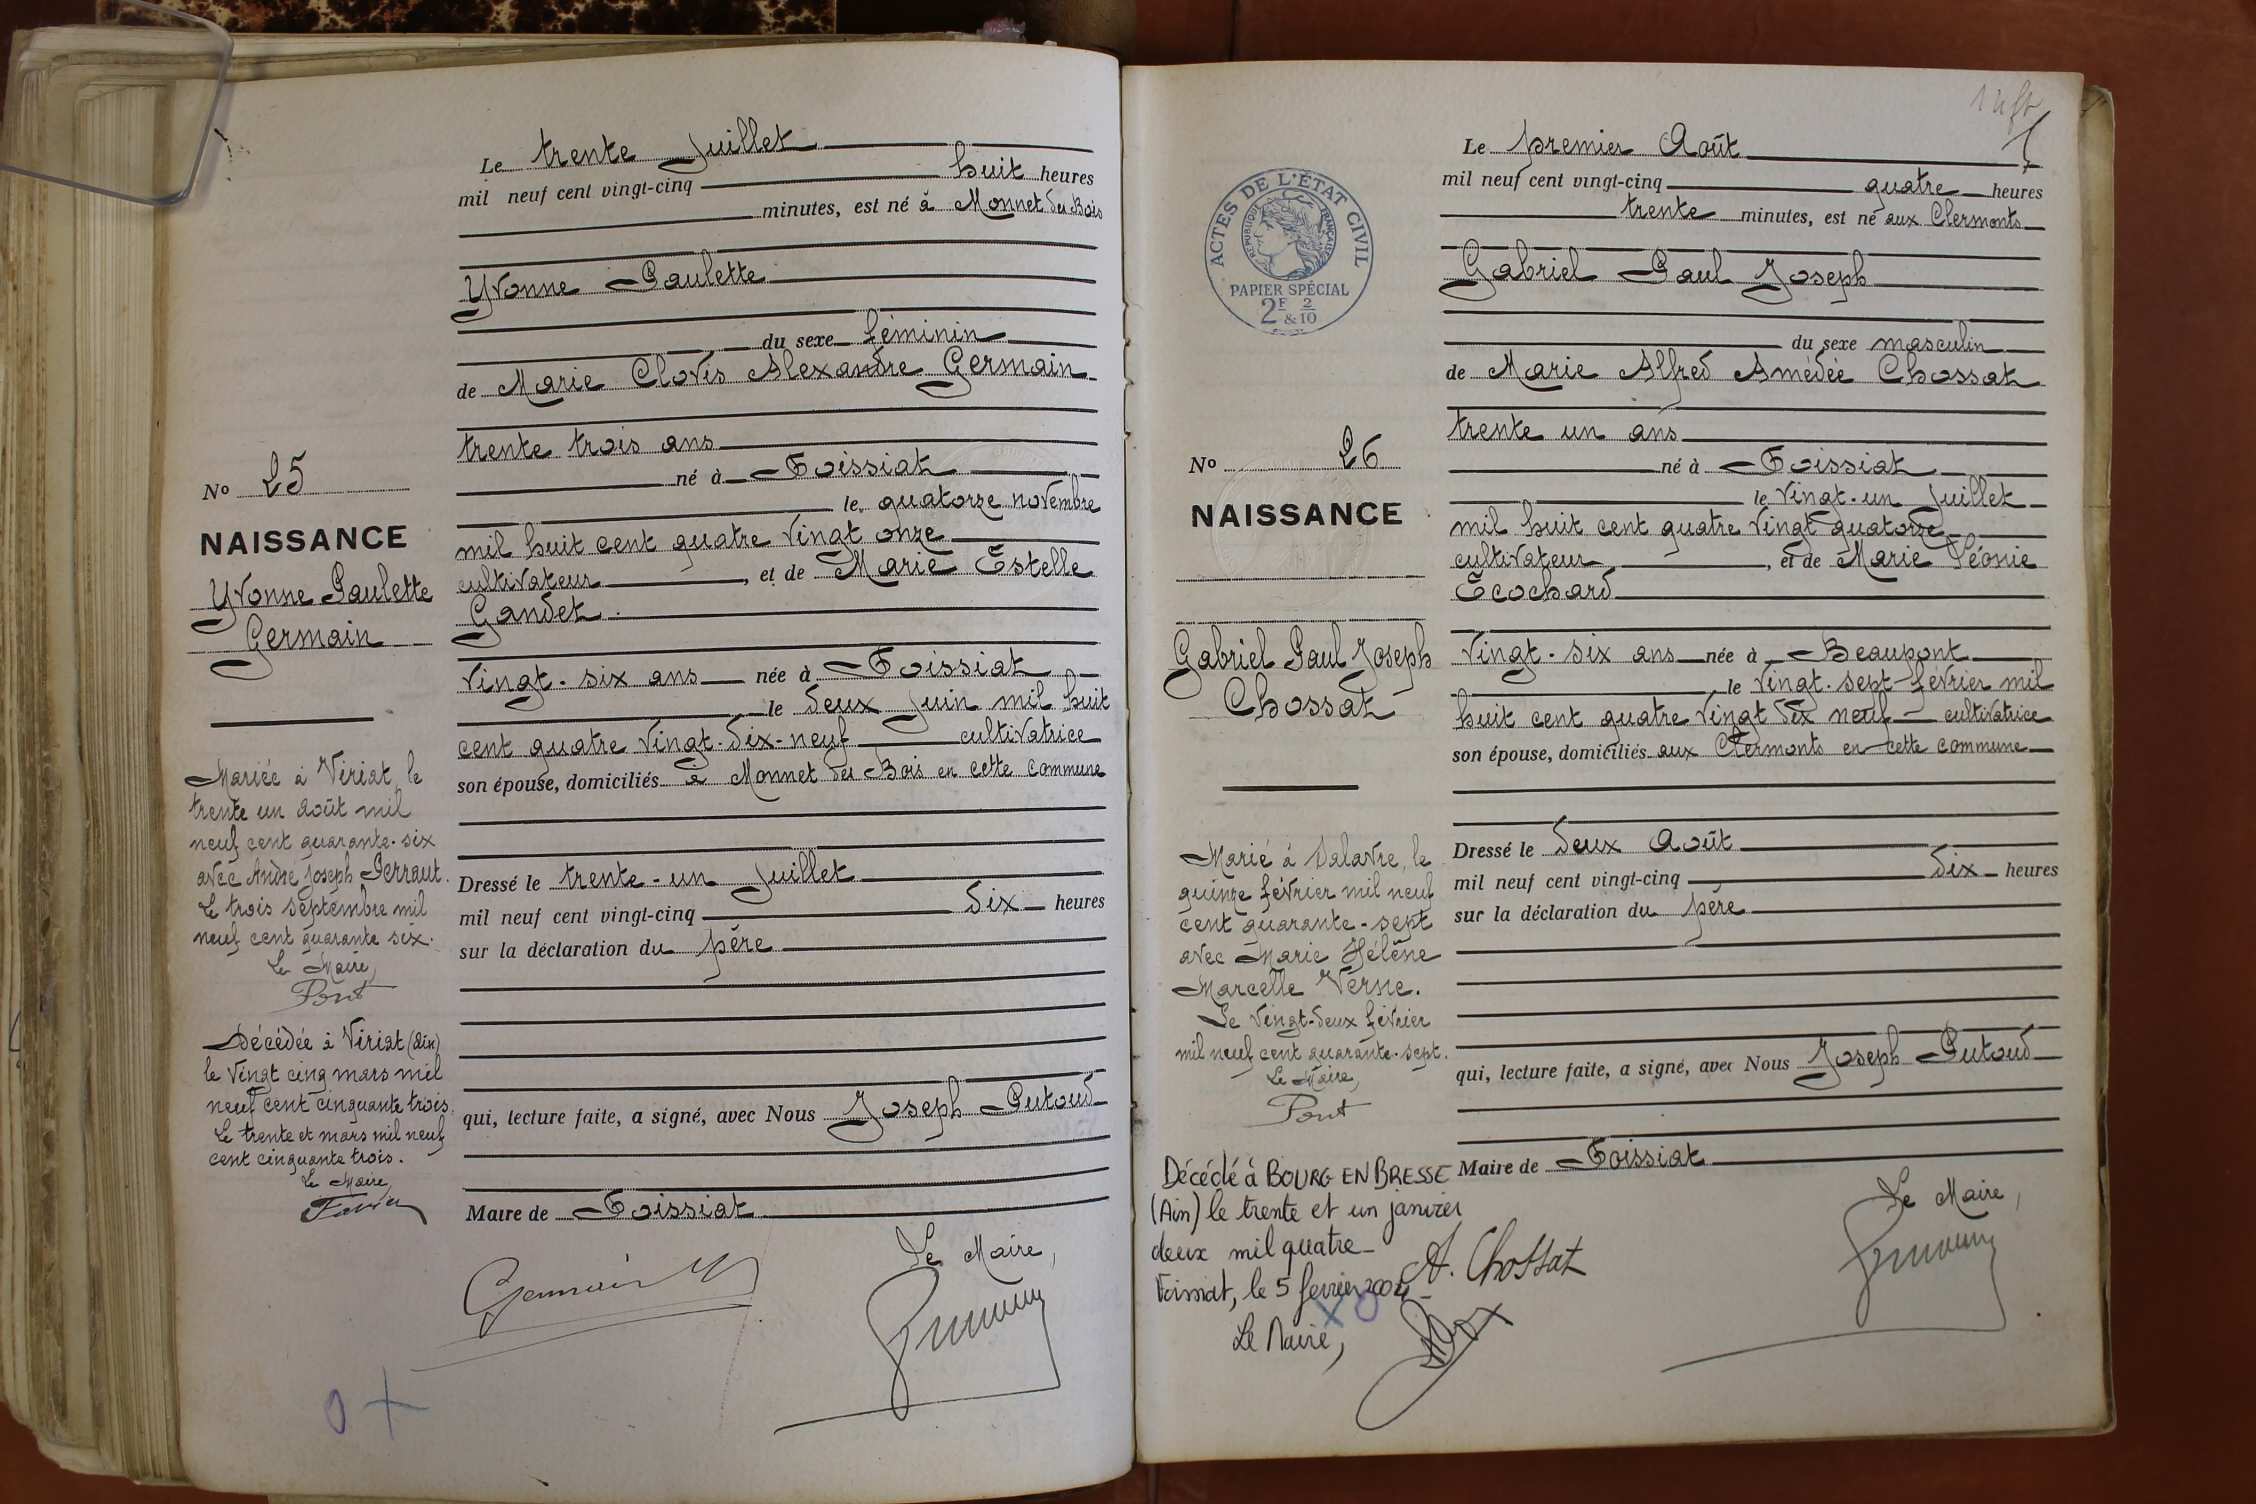 Le trente Juillet
mil neuf cent vingt-cinq huit heures
minutes, est né à Monnet des Bois
Yvonne Paulette
du sexe féminin
de Marie Clovis Alexandre Germain
trente trois ans
né à Foissiat
le quatorze novembre
mil huit cent quatre vingt onze
cultivateur, et de Marie Estelle
Gandet
vingt-six ans née à Foissiat
le deux Juin mil huit
cent quatre vingt-dix-neuf cultivatrice
son épouse, domiciliés à Monnet des Bois en cette commune
Dressé le trente-un Juillet
mil neuf cent vingt-cinq dix heures
sur la déclaration du père
qui, lecture faite, a signé, avec Nous Joseph Putoud
Maire de Foissiat
Le Maire,
Germain
No 25
NAISSANCE
Yvonne Paulette
Germain
Mariée à Viriat, le
trente un août mil
neuf cent quarante-six
avec André Joseph Perraut.
Le trois septembre mil
neuf cent quarante six.
Le Maire,
Pont
Décédée à Viriat (Ain)
le vingt cinq mars mil
neuf cent cinquante trois.
Le trente et mars mil neuf
cent cinquante trois.
Le Maire,
Le premier Août
mil neuf cent vingt-cinq quatre heures
trente minutes, est né aux Clermonts
Gabriel Paul Joseph
du sexe masculin
de Marie Alfred Amédée Chossat
trente un ans
né à Foissiat
le vingt-un Juillet
mil huit cent quatre vingt quatorze
cultivateur, et de Marie Léonie
Ecochard
vingt-six ans née à Beaupont
le vingt-sept février mil
huit cent quatre vingt dix neuf cultivatrice
son épouse, domiciliés aux Clermonts en cette commune
Dressé le deux Août
mil neuf cent vingt-cinq dix heures
sur la déclaration du père
qui, lecture faite, a signé, avec Nous Joseph Putoud
Maire de Foissiat
Le Maire,
A. Chossat
ACTES DE L'ÉTAT CIVIL
RÉPUBLIQUE FRANÇAISE
PAPIER SPÉCIAL
2F 2
& 10
No 26
NAISSANCE
Gabriel Paul Joseph
Chossat
Marié à Salavre, le
quinze février mil neuf
cent quarante-sept
avec Marie Hélène
Marcelle Verne.
Le vingt-deux février
mil neuf cent quarante-sept.
Le Maire,
Pont
Décédé à BOURG EN BRESSE
(Ain) le trente et un janvier
deux mil quatre
Foissiat, le 5 février 2004
Le Maire,